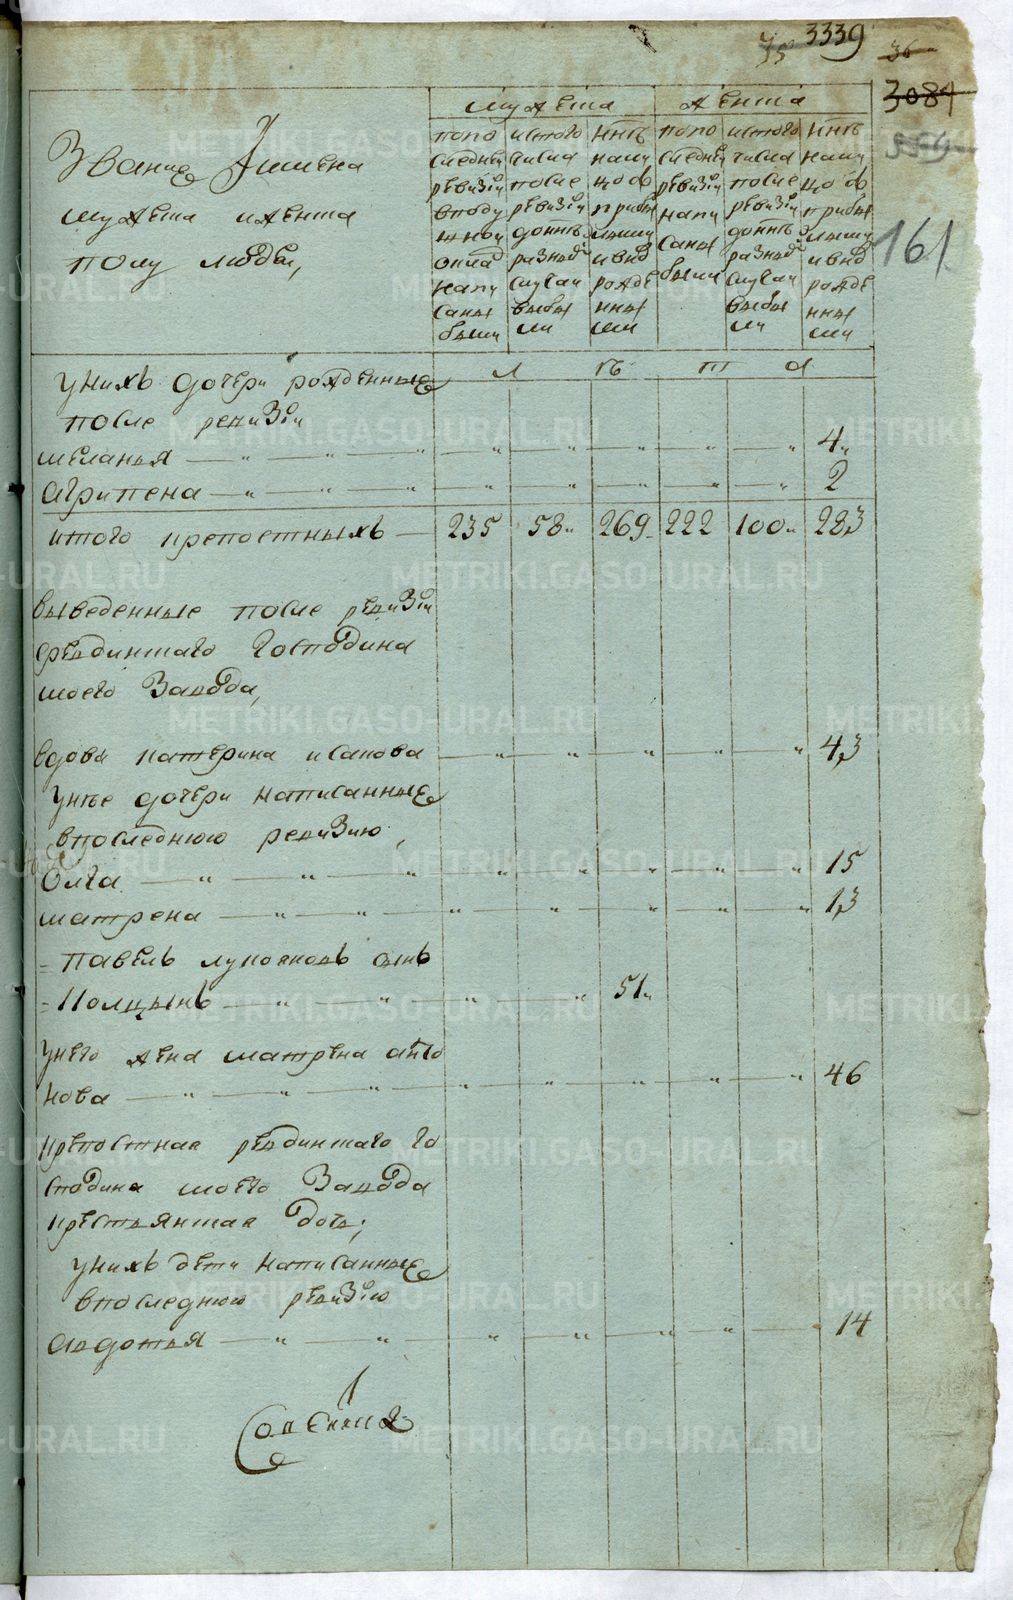 35 3339
36
3084
559
161
мужеска женска
Звание Iимена
мужеска иженска
полу людей,
попо
следней
ревизiи
вподу
шной
окла
напи
саны
были
истого
числа
после
ревизiи
донне
разныхъ
случаи
выбы
ли
нне
нали
цо съ
прибы
лыми
ивнов
рожде
нны
ми
попо
следней
ревизiи
напи
саны
были
истого
числа
после
ревизiи
донне
разныхъ
случаи
выбы
ли
нне
нали
цо съ
прибы
лыми
ивнов
рожде
нны
ми
л ѣ т а
унихъ дочери рожденные
после ревизiи
меланья 4
агрипена 2
итого крепостныхъ 235 58 269 222 100 283
выведенные после ревизiи
ревдинскаго господина
моего завода,
вдова катерина исакова 43
унее дочери написанные
впоследнюю ревизию,
олга 15
матрена 13
павелъ лукояновъ сынъ
51
унего жена матрена анто
нова 46
крепостная ревдинскаго го
сподина моего завода
крестьянская дочь;
унихъ дети написанные
впоследнюю ревизiю
авдотья 14